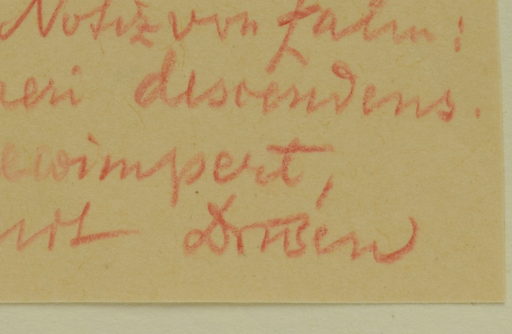 Notiz von Palm:
neri descendens.
ewimpert,
mit Drüsen